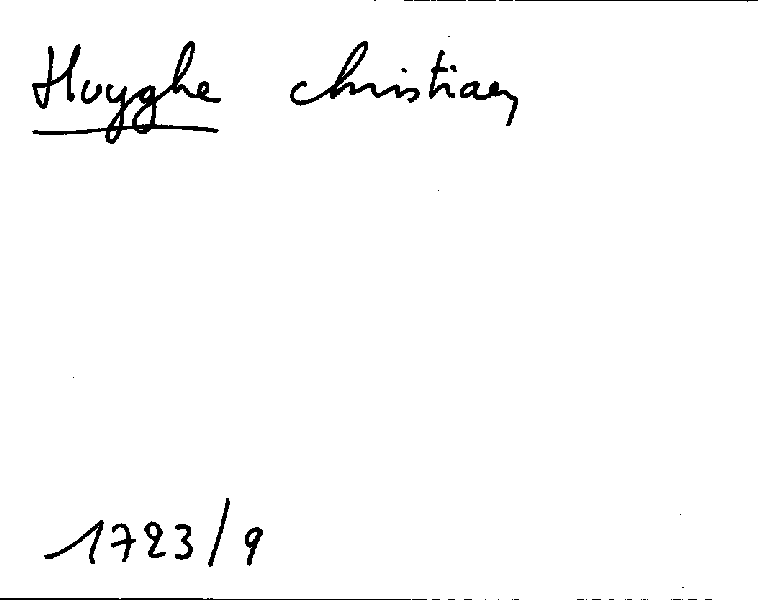 Huyghe christiaen
1723/9